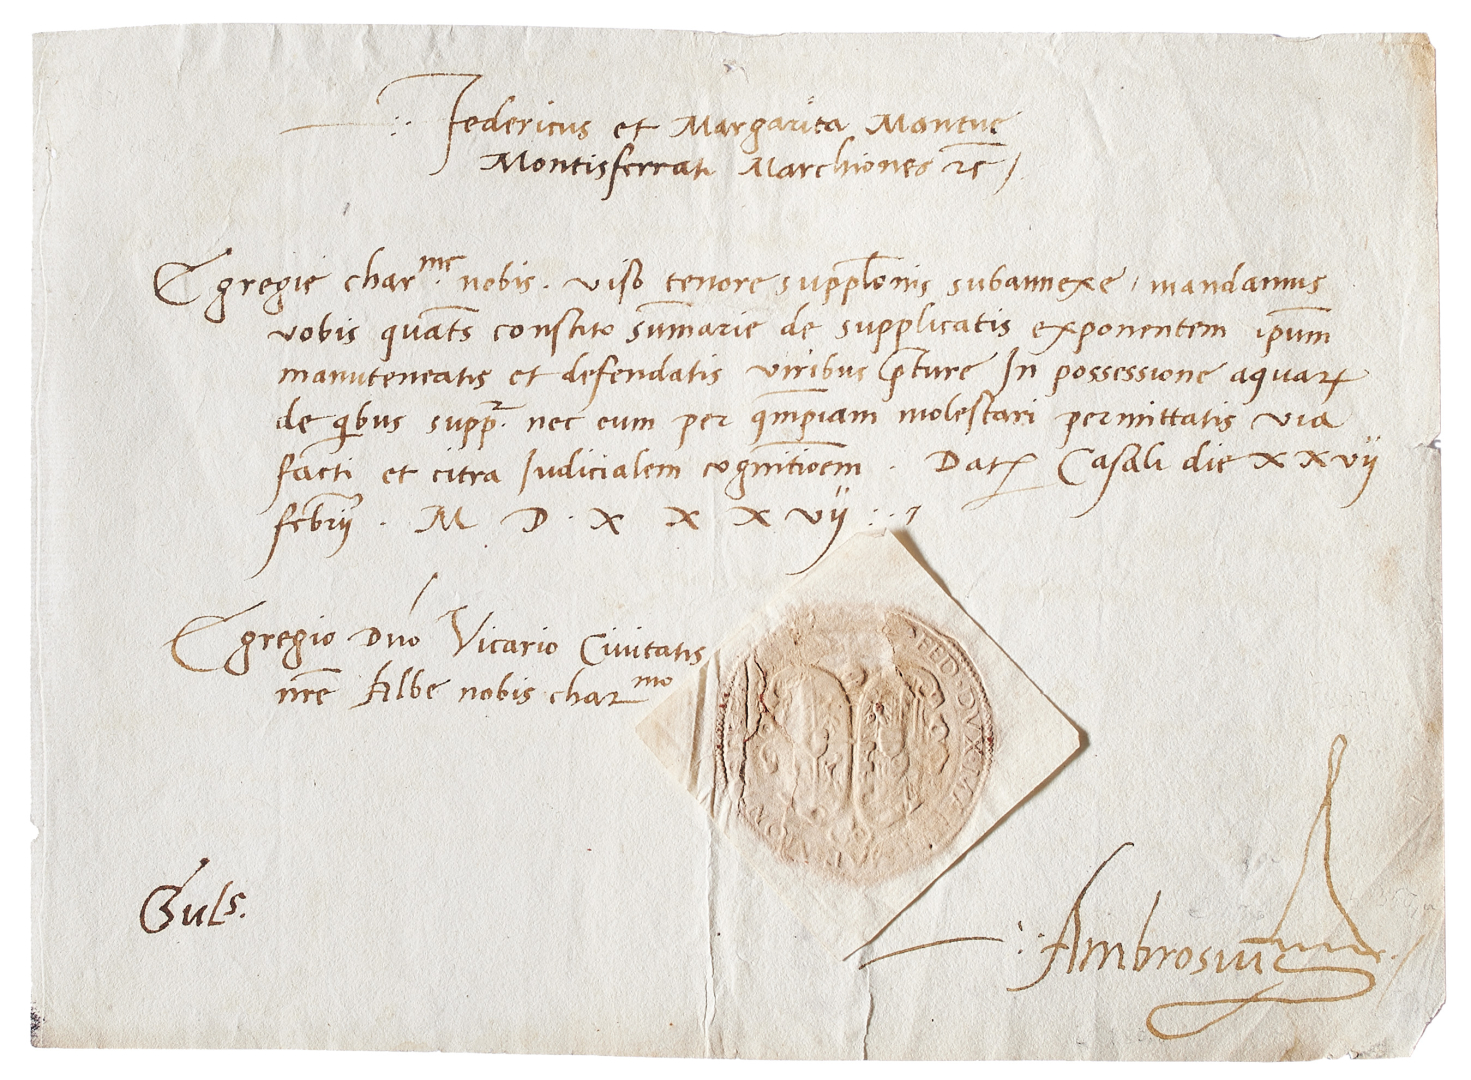 Federicus et Margarita Mantue
Montisferrati Marchiones zc
Egregie char.me nobis. viso tenore supplonis subannexe, mandamus
vobis quats constito sumarie de supplicatis exponentem ipum
manuteneatis et defendatis viribus pture In possessione aquarꝝ
de qbus suppr. nec eum per qmpiam molestari permittatis via
facti et citra Iudicialem cognitioem. Datꝝ Casali die XXvij
febrij. M D. X X X vij
Egregio Dno Vicario Civitatis
nre Albe nobis char.mo
FED DVX
Guls.
Ambrosius